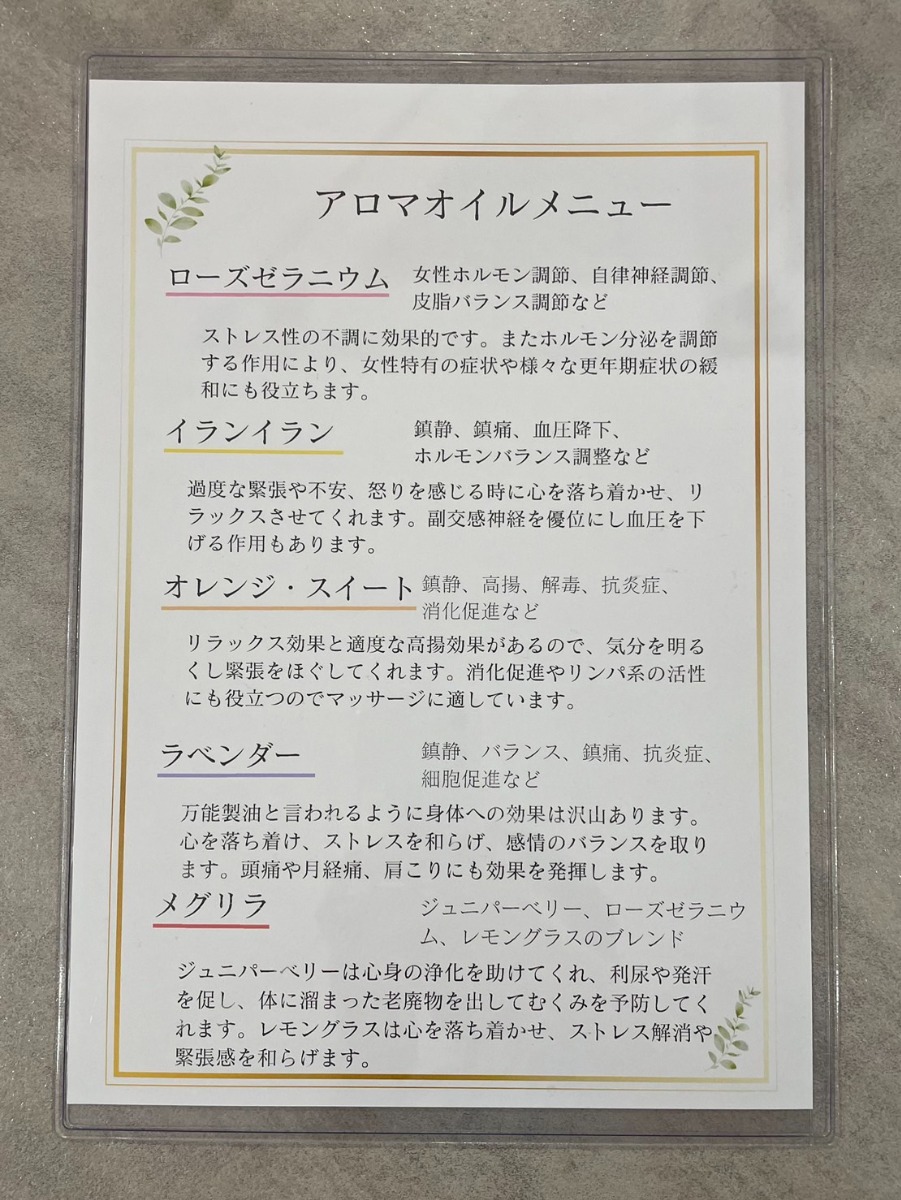 アロマオイルメニュー
ローズゼラニウム
女性ホルモン調節、自律神経調節、
皮脂バランス調節など
ストレス性の不調に効果的です。またホルモン分泌を調節
する作用により、女性特有の症状や様々な更年期症状の緩
和にも役立ちます。
イランイラン
鎮静、鎮痛、血圧降下、
ホルモンバランス調整など
過度な緊張や不安、怒りを感じる時に心を落ち着かせ、リ
ラックスさせてくれます。副交感神経を優位にし血圧を下
げる作用もあります。
オレンジ・スイート
鎮静、高揚、解毒、抗炎症、
消化促進など
リラックス効果と適度な高揚効果があるので、気分を明る
くし緊張をほぐしてくれます。消化促進やリンパ系の活性
にも役立つのでマッサージに適しています。
ラベンダー
鎮静、バランス、鎮痛、抗炎症、
細胞促進など
万能製油と言われるように身体への効果は沢山あります。
心を落ち着け、ストレスを和らげ、感情のバランスを取り
ます。頭痛や月経痛、肩こりにも効果を発揮します。
メグリラ
ジュニパーベリー、ローズゼラニウ
ム、レモングラスのブレンド
ジュニパーベリーは心身の浄化を助けてくれ、利尿や発汗
を促し、体に溜まった老廃物を出してむくみを予防してく
れます。レモングラスは心を落ち着かせ、ストレス解消や
緊張感を和らげます。